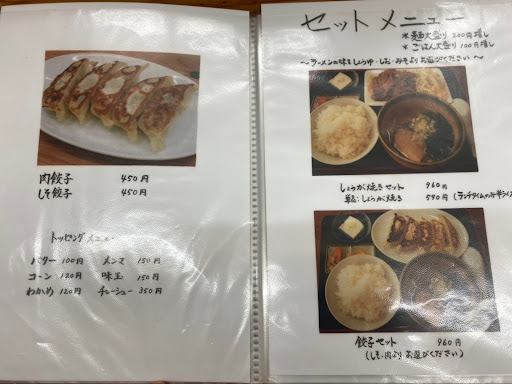 肉餃子 450円
しそ餃子 450円
トッピングメニュー
バター 100円 メンマ 150円
コーン 120円 味玉 150円
わかめ 120円 チャーシュー 350円
セットメニュー
*麺大盛り 200円増し
*ごはん大盛り 100円増し
～ラーメンの味をしょうゆ・しお・みそよりお選びください～
しょうが焼きセット 960円
単品:しょうが焼き 590円 (ランチタイムのみ半ライ
餃子セット 960円
(しそ・肉よりお選びください)